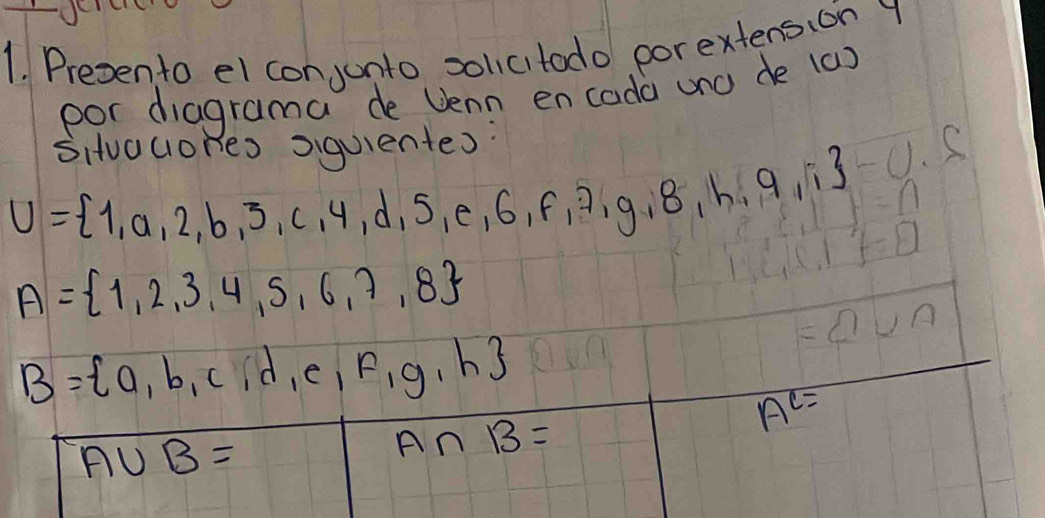 1. Presento el conjunto solicitado por extensión y
por diagrama de Venn en cada una de las
situaciones siguientes:
U = {1, a, 2, b, 3, c, 4, d, 5, e, 6, f, 7, g, 8, h, 9, i}
A = {1, 2, 3, 4, 5, 6, 7, 8}
B = {a, b, c, d, e, f, g, h}
A∪B = A∩B = Aᶜ=